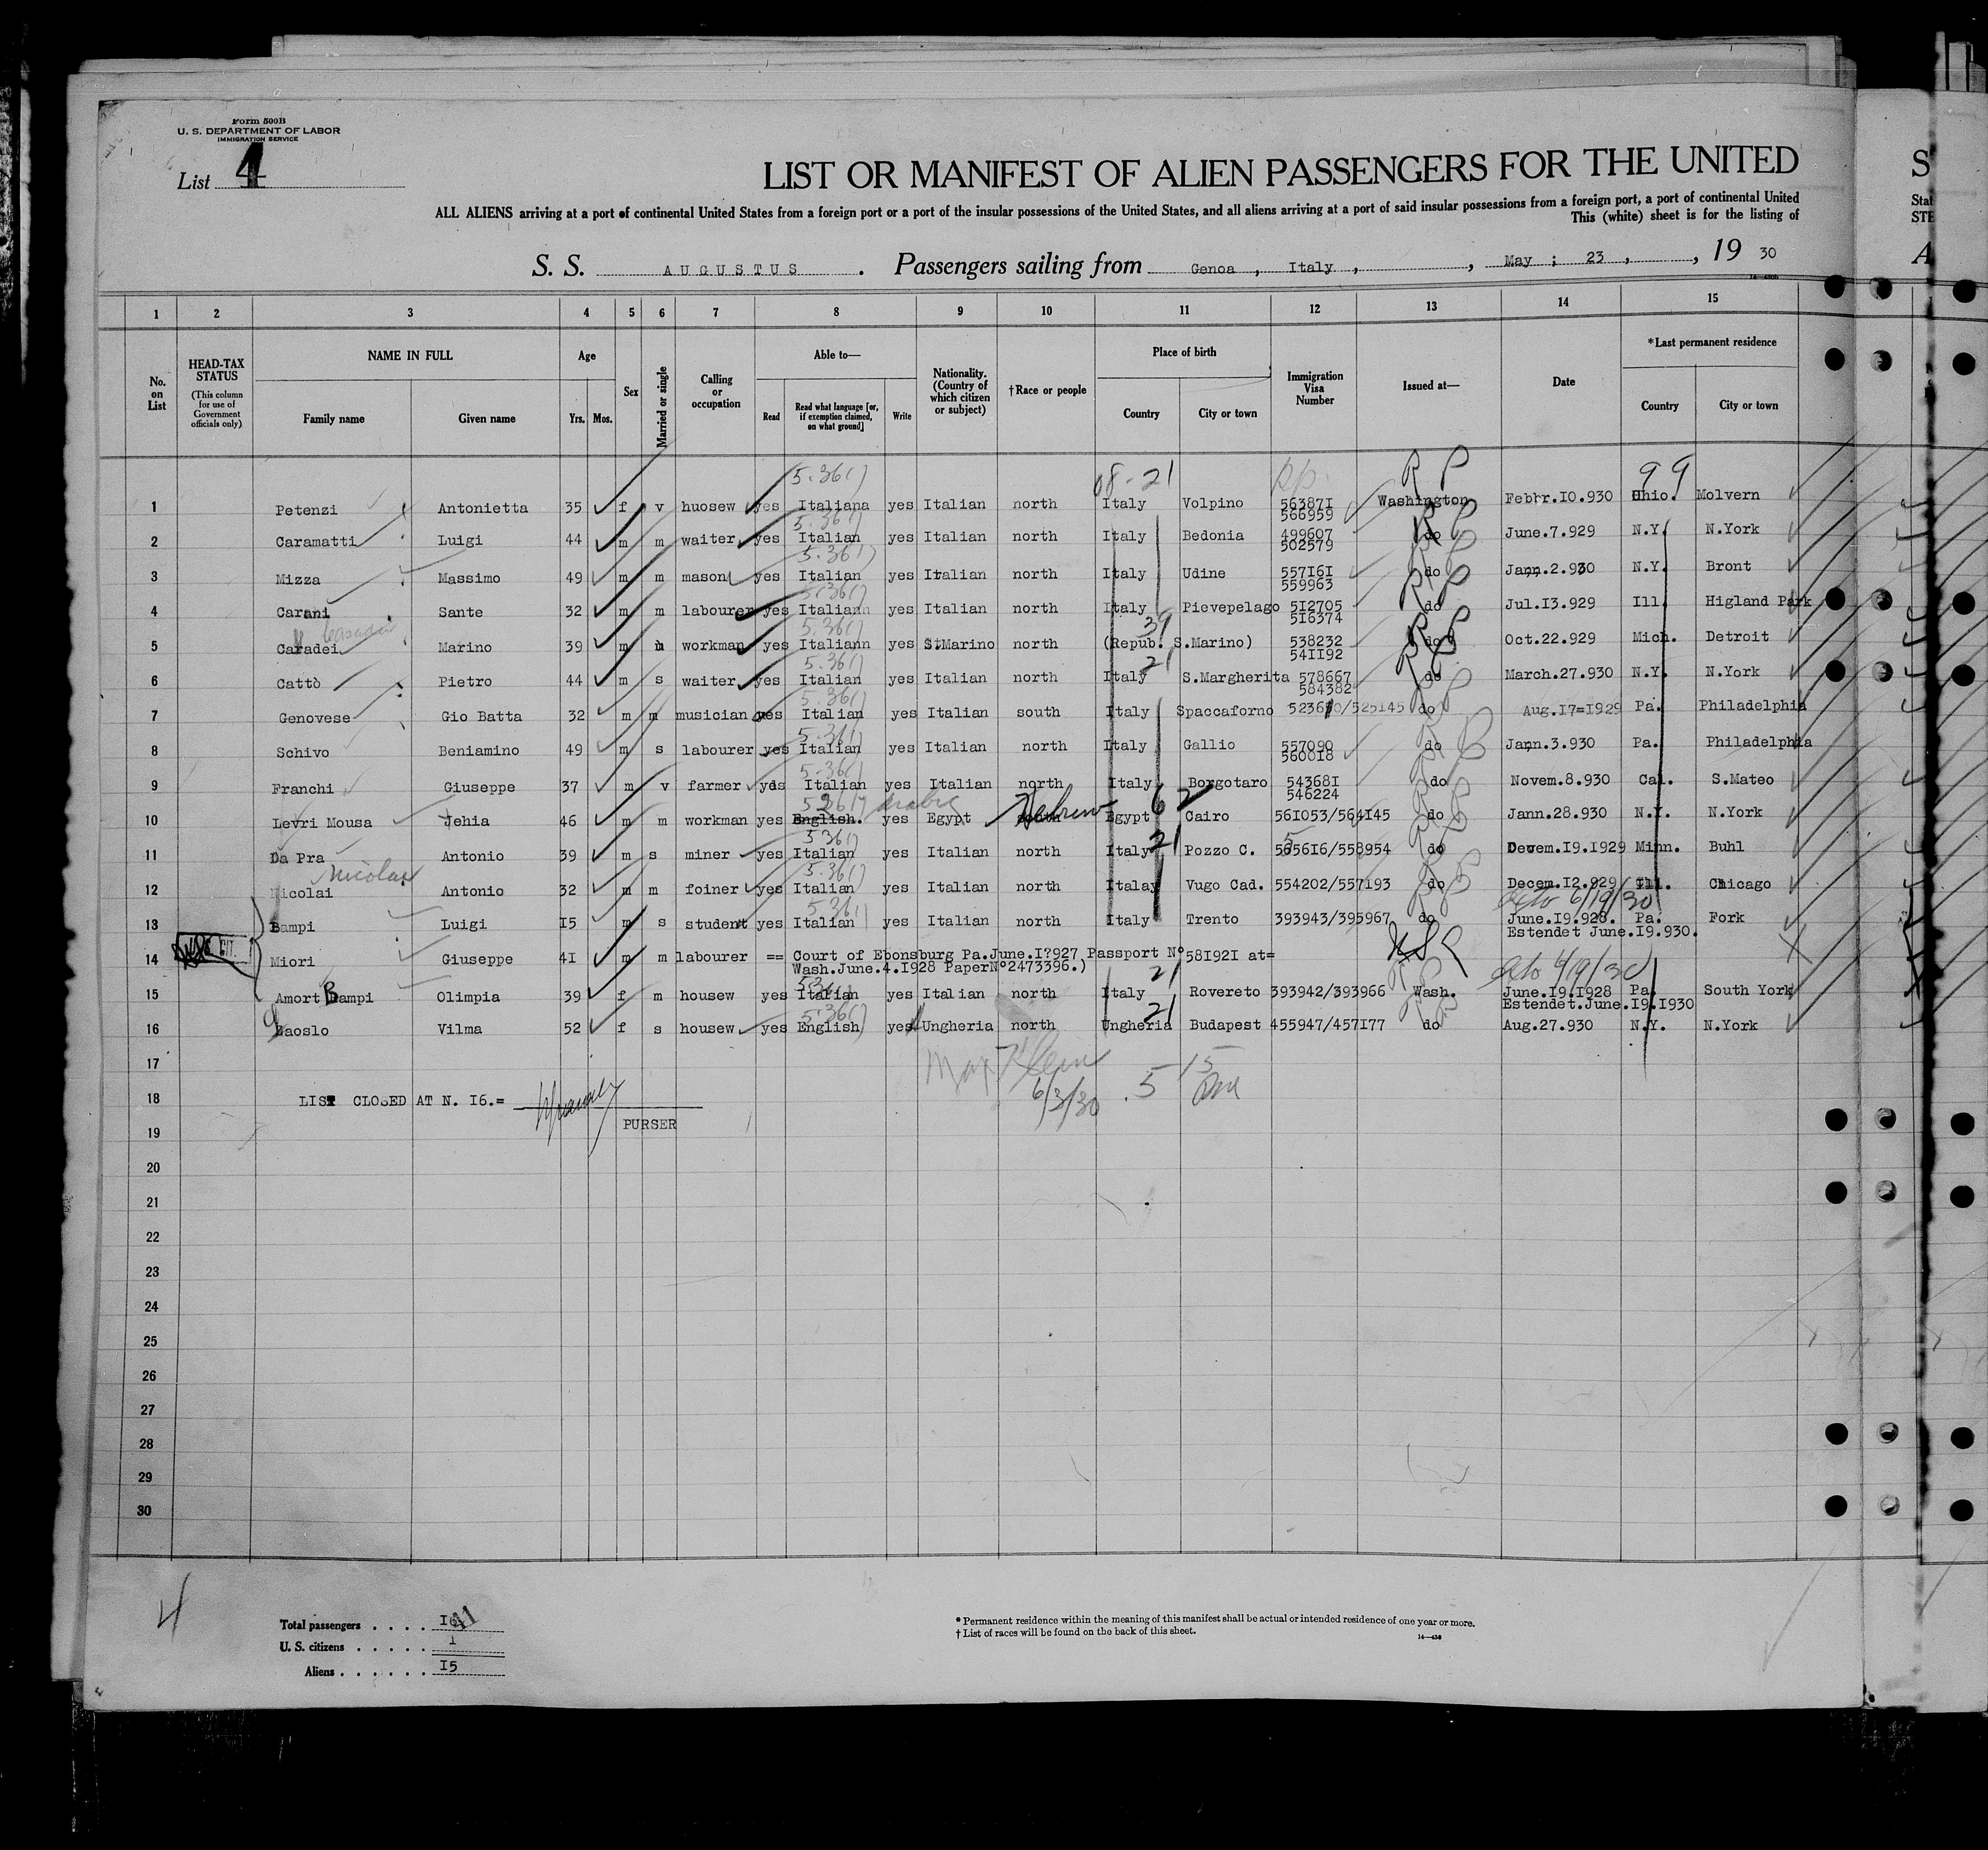 Form 500B
U. S. DEPARTMENT OF LABOR
IMMIGRATION SERVICE
List 4
LIST OR MANIFEST OF ALIEN PASSENGERS FOR THE UNITED
ALL ALIENS arriving at a port of continental United States from a foreign port or a port of the insular possessions of the United States, and all aliens arriving at a port of said insular possessions from a foreign port, a port of continental United
This (white) sheet is for the listing of
S. S. AUGUSTUS . Passengers sailing from Genoa , Italy , , May ; 23 , , 19 30
1 2 3 4 5 6 7 8 9 10 11 12 13 14 15
No. on List
HEAD-TAX STATUS (This column for use of Government officials only)
NAME IN FULL Family name Given name
Age Yrs. Mos.
Sex
Married or single
Calling or occupation
Able to— Read Read what language [or, if exemption claimed, on what ground] Write
Nationality. (Country of which citizen or subject)
†Race or people
Place of birth Country City or town
Immigration Visa Number
Issued at—
Date
*Last permanent residence Country City or town
5-36() 08-21 RP 99
1 Petenzi Antonietta 35 f v huosew yes Italiana yes Italian north Italy Volpino 56387I 566959 Washington Febrr.I0.930 Ohio. Molvern
2 Caramatti Luigi 44 m m waiter yes Italian yes Italian north Italy Bedonia 499607 502579 do June.7.929 N.Y. N.York
3 Mizza Massimo 49 m m mason yes Italian yes Italian north Italy Udine 557I6I 559963 do Jann.2.930 N.Y. Bront
4 Carani Sante 32 m m labourer yes Italiann yes Italian north Italy Pievepelago 5I2705 5I6374 do Jul.I3.929 Ill. Higland Park
5 Caradei Marino 39 m m workman yes Italiann yes S.Marino north (Repub. S.Marino) 538232 54II92 do Oct.22.929 Mich. Detroit
6 Cattò Pietro 44 m s waiter yes Italian yes Italian north Italy S.Margherita 578667 584382 do March.27.930 N.Y. N.York
7 Genovese Gio Batta 32 m m musician yes Italian yes Italian south Italy Spaccaforno /525I45 do Aug.I7=I929 Pa. Philadelphia
8 Schivo Beniamino 49 m s labourer yes Italian yes Italian north Italy Gallio 557090 5600I8 do Jann.3.930 Pa. Philadelphia
9 Franchi Giuseppe 37 m v farmer yes Italian yes Italian north Italy Borgotaro 54368I 546224 do Novem.8.930 Cal. S.Mateo
Arabic Hebrew 62
10 Levri Mousa Jehia 46 m m workman yes English. yes Egypt Egypt Cairo 56I053/564I45 do Jann.28.930 N.Y. N.York
11 Da Pra Antonio 39 m s miner yes Italian yes Italian north Italy Pozzo C. 5656I6/558954 do Decem.I9.I929 Minn. Buhl
Nicolai
12 Nicolai Antonio 32 m m foiner yes Italian yes Italian north Italay Vugo Cad. 554202/557I93 do Decem.I2.929 Ill. Chicago
13 Bampi Luigi I5 m s student yes Italian yes Italian north Italy Trento 393943/395967 do June.I9.928. Pa. Fork
Estendet June.I9.930.
14 Miori Giuseppe 4I m m labourer == Court of Ebonsburg Pa.June.I?927 Passport N° 58I92I at=
Wash.June.4.I928 PaperN°2473396.)
15 Amort Bampi Olimpia 39 f m housew yes Italian yes Italian north Italy Rovereto 393942/393966 Wash. June.I9.I928 Pa. South York
Estendet.June.I9.I930
16 Baoslo Vilma 52 f s housew yes English yes Ungheria north Ungheria Budapest 455947/457I77 do Aug.27.930 N.Y. N.York
17 Max Klein
6/3/30 5 15 PM
18 LIST CLOSED AT N. I6.=
19 PURSER
20
21
22
23
24
25
26
27
28
29
30
4
Total passengers . . . . I6 41
U. S. citizens . . . . . 1
Aliens . . . . . . I5
* Permanent residence within the meaning of this manifest shall be actual or intended residence of one year or more.
† List of races will be found on the back of this sheet.